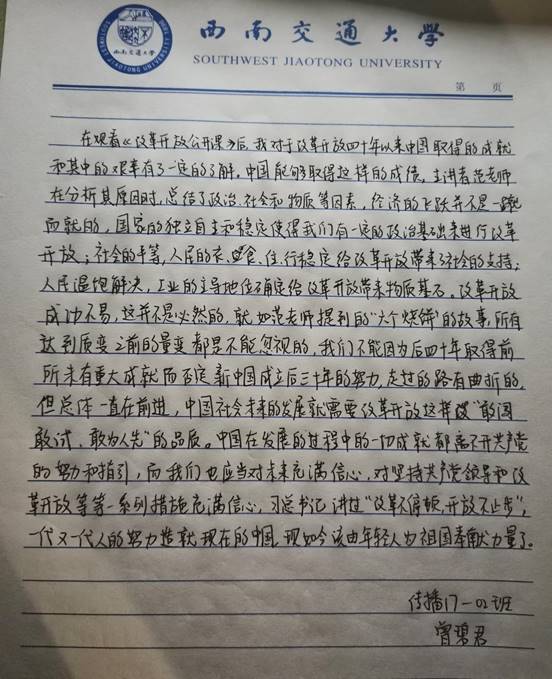 西南交通大学
SOUTHWEST JIAOTONG UNIVERSITY
第 页
在观看《改革开放公开课》后,我对于改革开放四十年以来中国取得的成就
和其中的艰辛有了一定的了解。中国能够取得这样的成绩,主讲者范老师
在分析其原因时,总结了政治、社会和物质等因素,经济的飞跃并不是一蹴
而就的,国家的独立自主和稳定使得我们有一定的政治基础来进行改革
开放;社会的平等,人民的衣、食、住、行稳定给改革开放带来了社会的支持;
人民温饱解决,工业的主导地位确定给改革开放带来物质基石。改革开放
成功不易,这并不是必然的,就如范老师提到的“六个烧饼”的故事,所有
达到质变之前的量变都是不能忽视的,我们不能因为后四十年取得前
所未有重大成就而否定新中国成立后三十年的努力,走过的路有曲折的,
但总体一直在前进,中国社会未来的发展就需要改革开放这样“敢闯
敢试,敢为人先”的品质。中国在发展的过程中的一切成就都离不开共产党
的努力和指引,而我们也应当对未来充满信心,对坚持共产党领导和改
革开放等等一系列措施充满信心,习总书记讲过“改革不停顿,开放不止步”,
一代又一代人的努力造就现在的中国,现如今该由年轻人为祖国奉献力量了。
传播17-02班
曾碧君